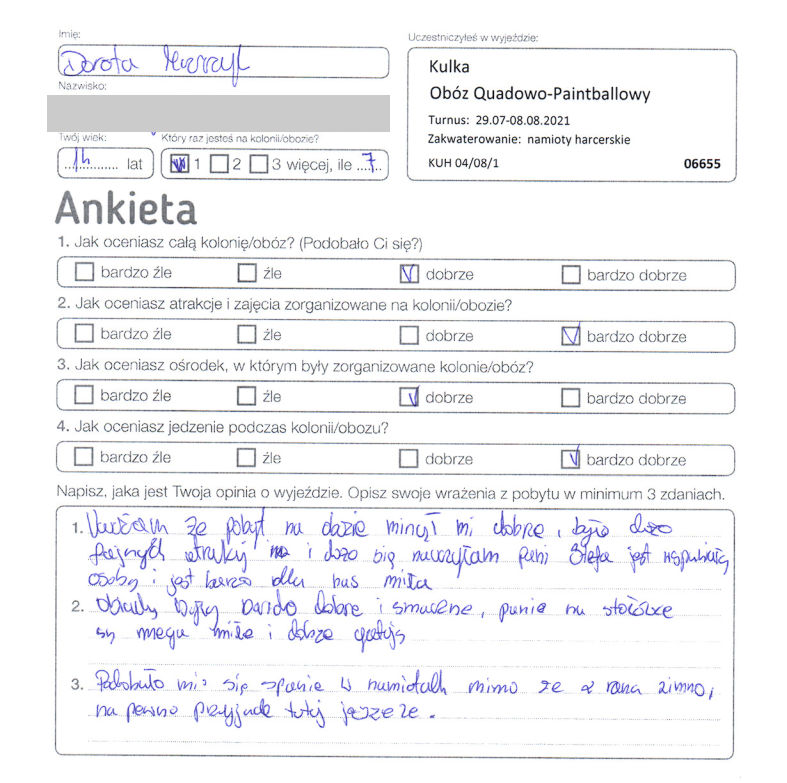 Imię:
Dorota
Nazwisko:
Twój wiek:
14 lat
Który raz jesteś na kolonii/obozie?
1 2 3 więcej, ile ..7..
Uczestniczyłeś w wyjeździe:
Kulka
Obóz Quadowo-Paintballowy
Turnus: 29.07-08.08.2021
Zakwaterowanie: namioty harcerskie
KUH 04/08/1 06655
Ankieta
1. Jak oceniasz całą kolonię/obóz? (Podobało Ci się?)
bardzo źle źle dobrze bardzo dobrze
2. Jak oceniasz atrakcje i zajęcia zorganizowane na kolonii/obozie?
bardzo źle źle dobrze bardzo dobrze
3. Jak oceniasz ośrodek, w którym były zorganizowane kolonie/obóz?
bardzo źle źle dobrze bardzo dobrze
4. Jak oceniasz jedzenie podczas kolonii/obozu?
bardzo źle źle dobrze bardzo dobrze
Napisz, jaka jest Twoja opinia o wyjeździe. Opisz swoje wrażenia z pobytu w minimum 3 zdaniach.
1. Uważam że pobyt na obozie minął mi dobrze, było dużo
fajnych atrakcji i dużo się nauczyłam pani Stefa jest wspaniałą
osobą i jest bardzo dla nas miła
2. Obiady były bardzo dobre i smaczne, panie na stołówce
są mega miłe i dobrze gotują
3. Podobało mi się spanie w namiotach mimo że z rana zimno,
na pewno przyjadę tutaj jeszcze.